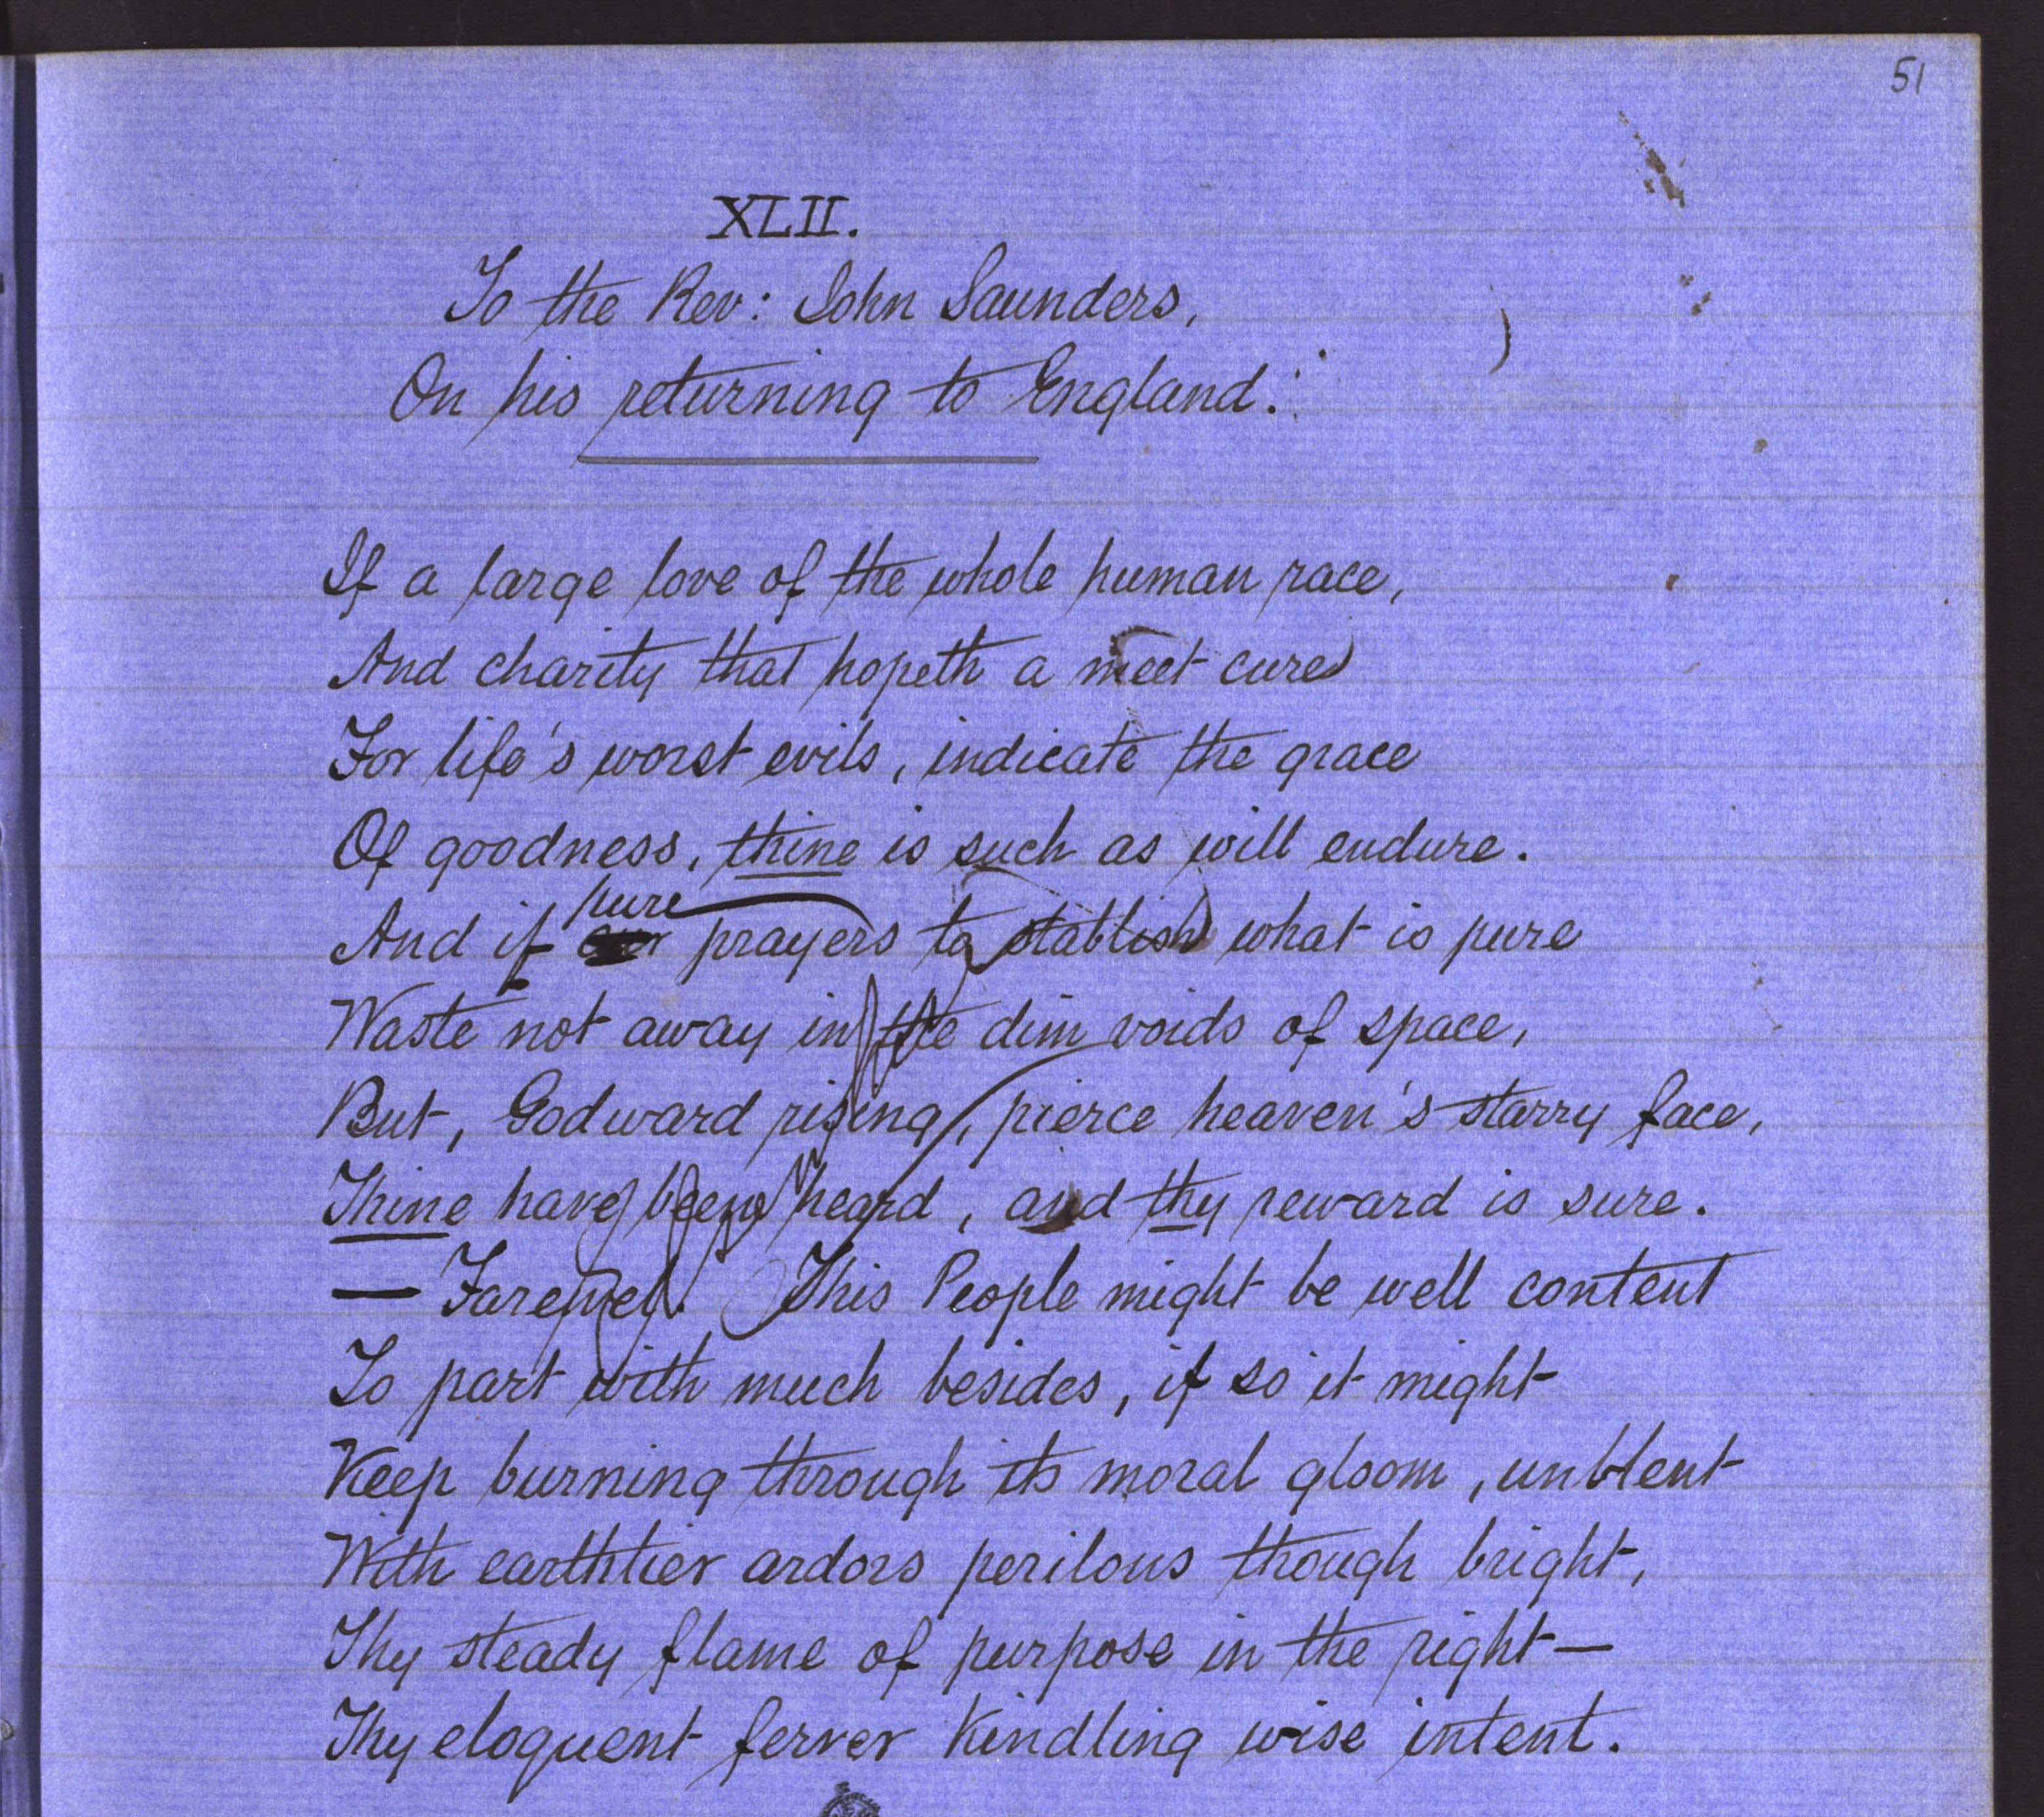 51
XLII.
To the Rev: John Saunders,
On his returning to England.
If a large love of the whole human race,
And charity that hopeth a meet cure
For life's worst evils, indicate the grace
Of goodness, thine is such as will endure.
pure
And if our prayers to stablish what is pure
Waste not away in the dim voids of space,
But, Godward rising, pierce heaven's starry face,
Thine have been heard, and thy reward is sure.
— Farewel. This People might be well content
To part with much besides, if so it might
Keep burning through its moral gloom, unblent
With earthlier ardors perilous though bright,
Thy steady flame of purpose in the right—
Thy eloquent ferver kindling wise intent.